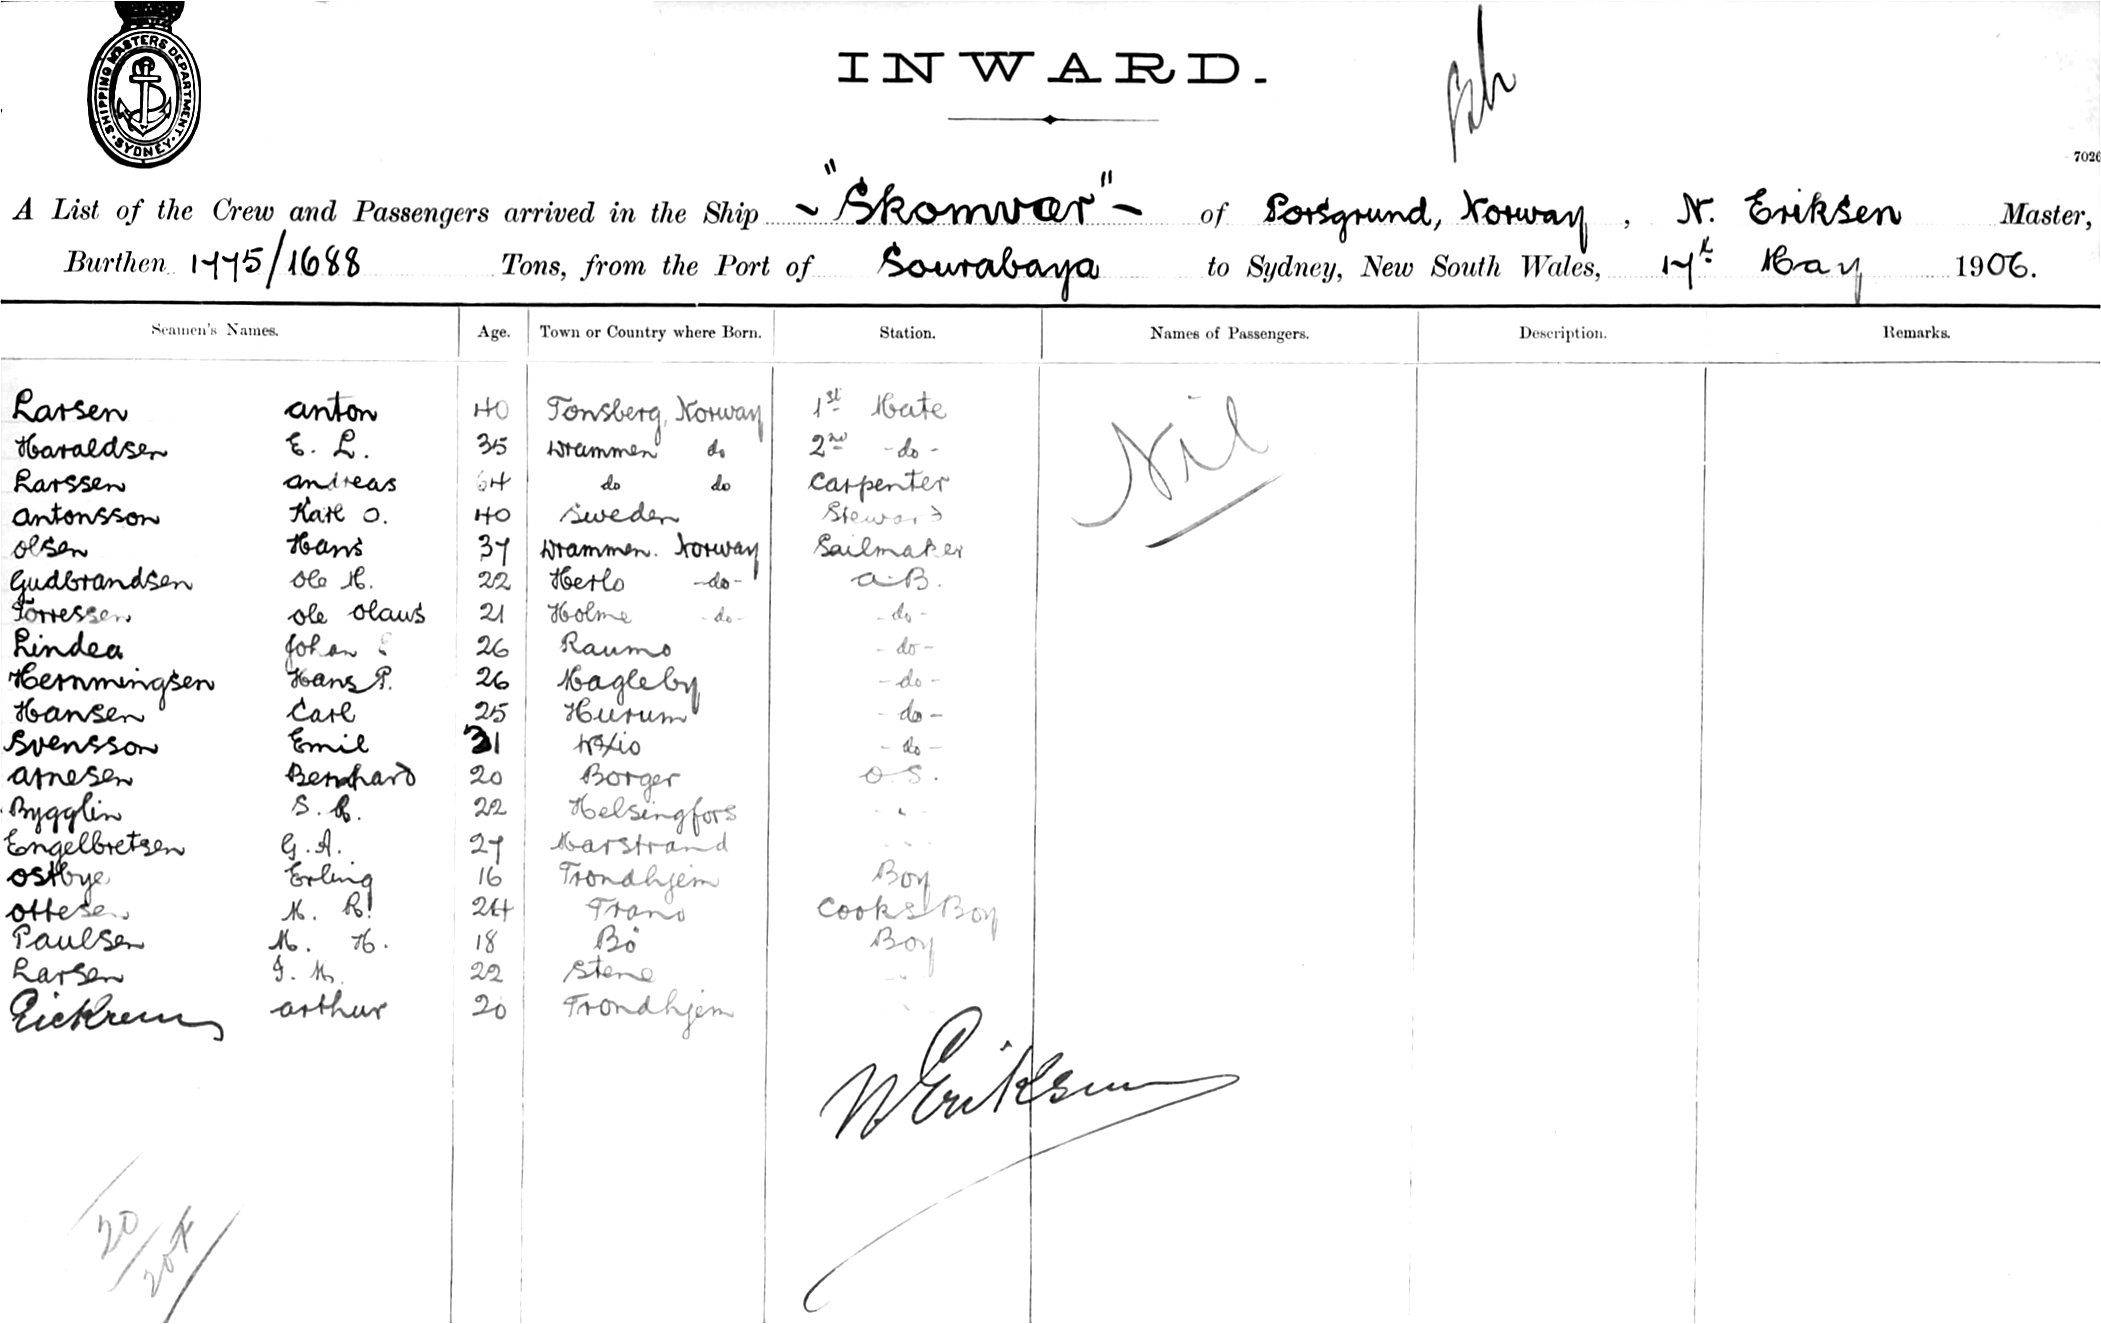 SHIPPING MASTERS DEPARTMENT · SYDNEY ·
INWARD.
7026
A List of the Crew and Passengers arrived in the Ship "Skomvær" of Porsgrund, Norway, N. Eriksen Master,
Burthen 1775/1688 Tons, from the Port of Sourabaya to Sydney, New South Wales, 17th May 1906.
Seamen's Names. Age. Town or Country where Born. Station. Names of Passengers. Description. Remarks.
Larsen Anton 40 Tonsberg, Norway 1st Mate Nil
Haraldsen E. L. 35 Drammen do 2nd -do-
Larssen Andreas 64 do do Carpenter
Antonsson Karl O. 40 Sweden Steward
Olsen Hans 37 Drammen. Norway Sailmaker
Gudbrandsen Ole M. 22 Herlo -do- A.B.
Torressen Ole Olaus 21 Holme -do- -do-
Lindea Johan 26 Raumo -do-
Hemmingsen Hans P. 26 Magleby -do-
Hansen Carl 25 Hurum -do-
Svensson Emil 31 -do-
Arnesen Bernhard 20 Borger O.S.
Bygglin S. R. 22 Helsingfors
Engelbretsen G. A. 27 Marstrand
Ostbye Erling 16 Trondhjem Boy
Ottesen M. R. 24 Trano Cooks Boy
Paulsen M. H. 18 Bö Boy
Larsen J. M. 22 Stene
Arthur 20 Trondhjem
N Eriksen
20